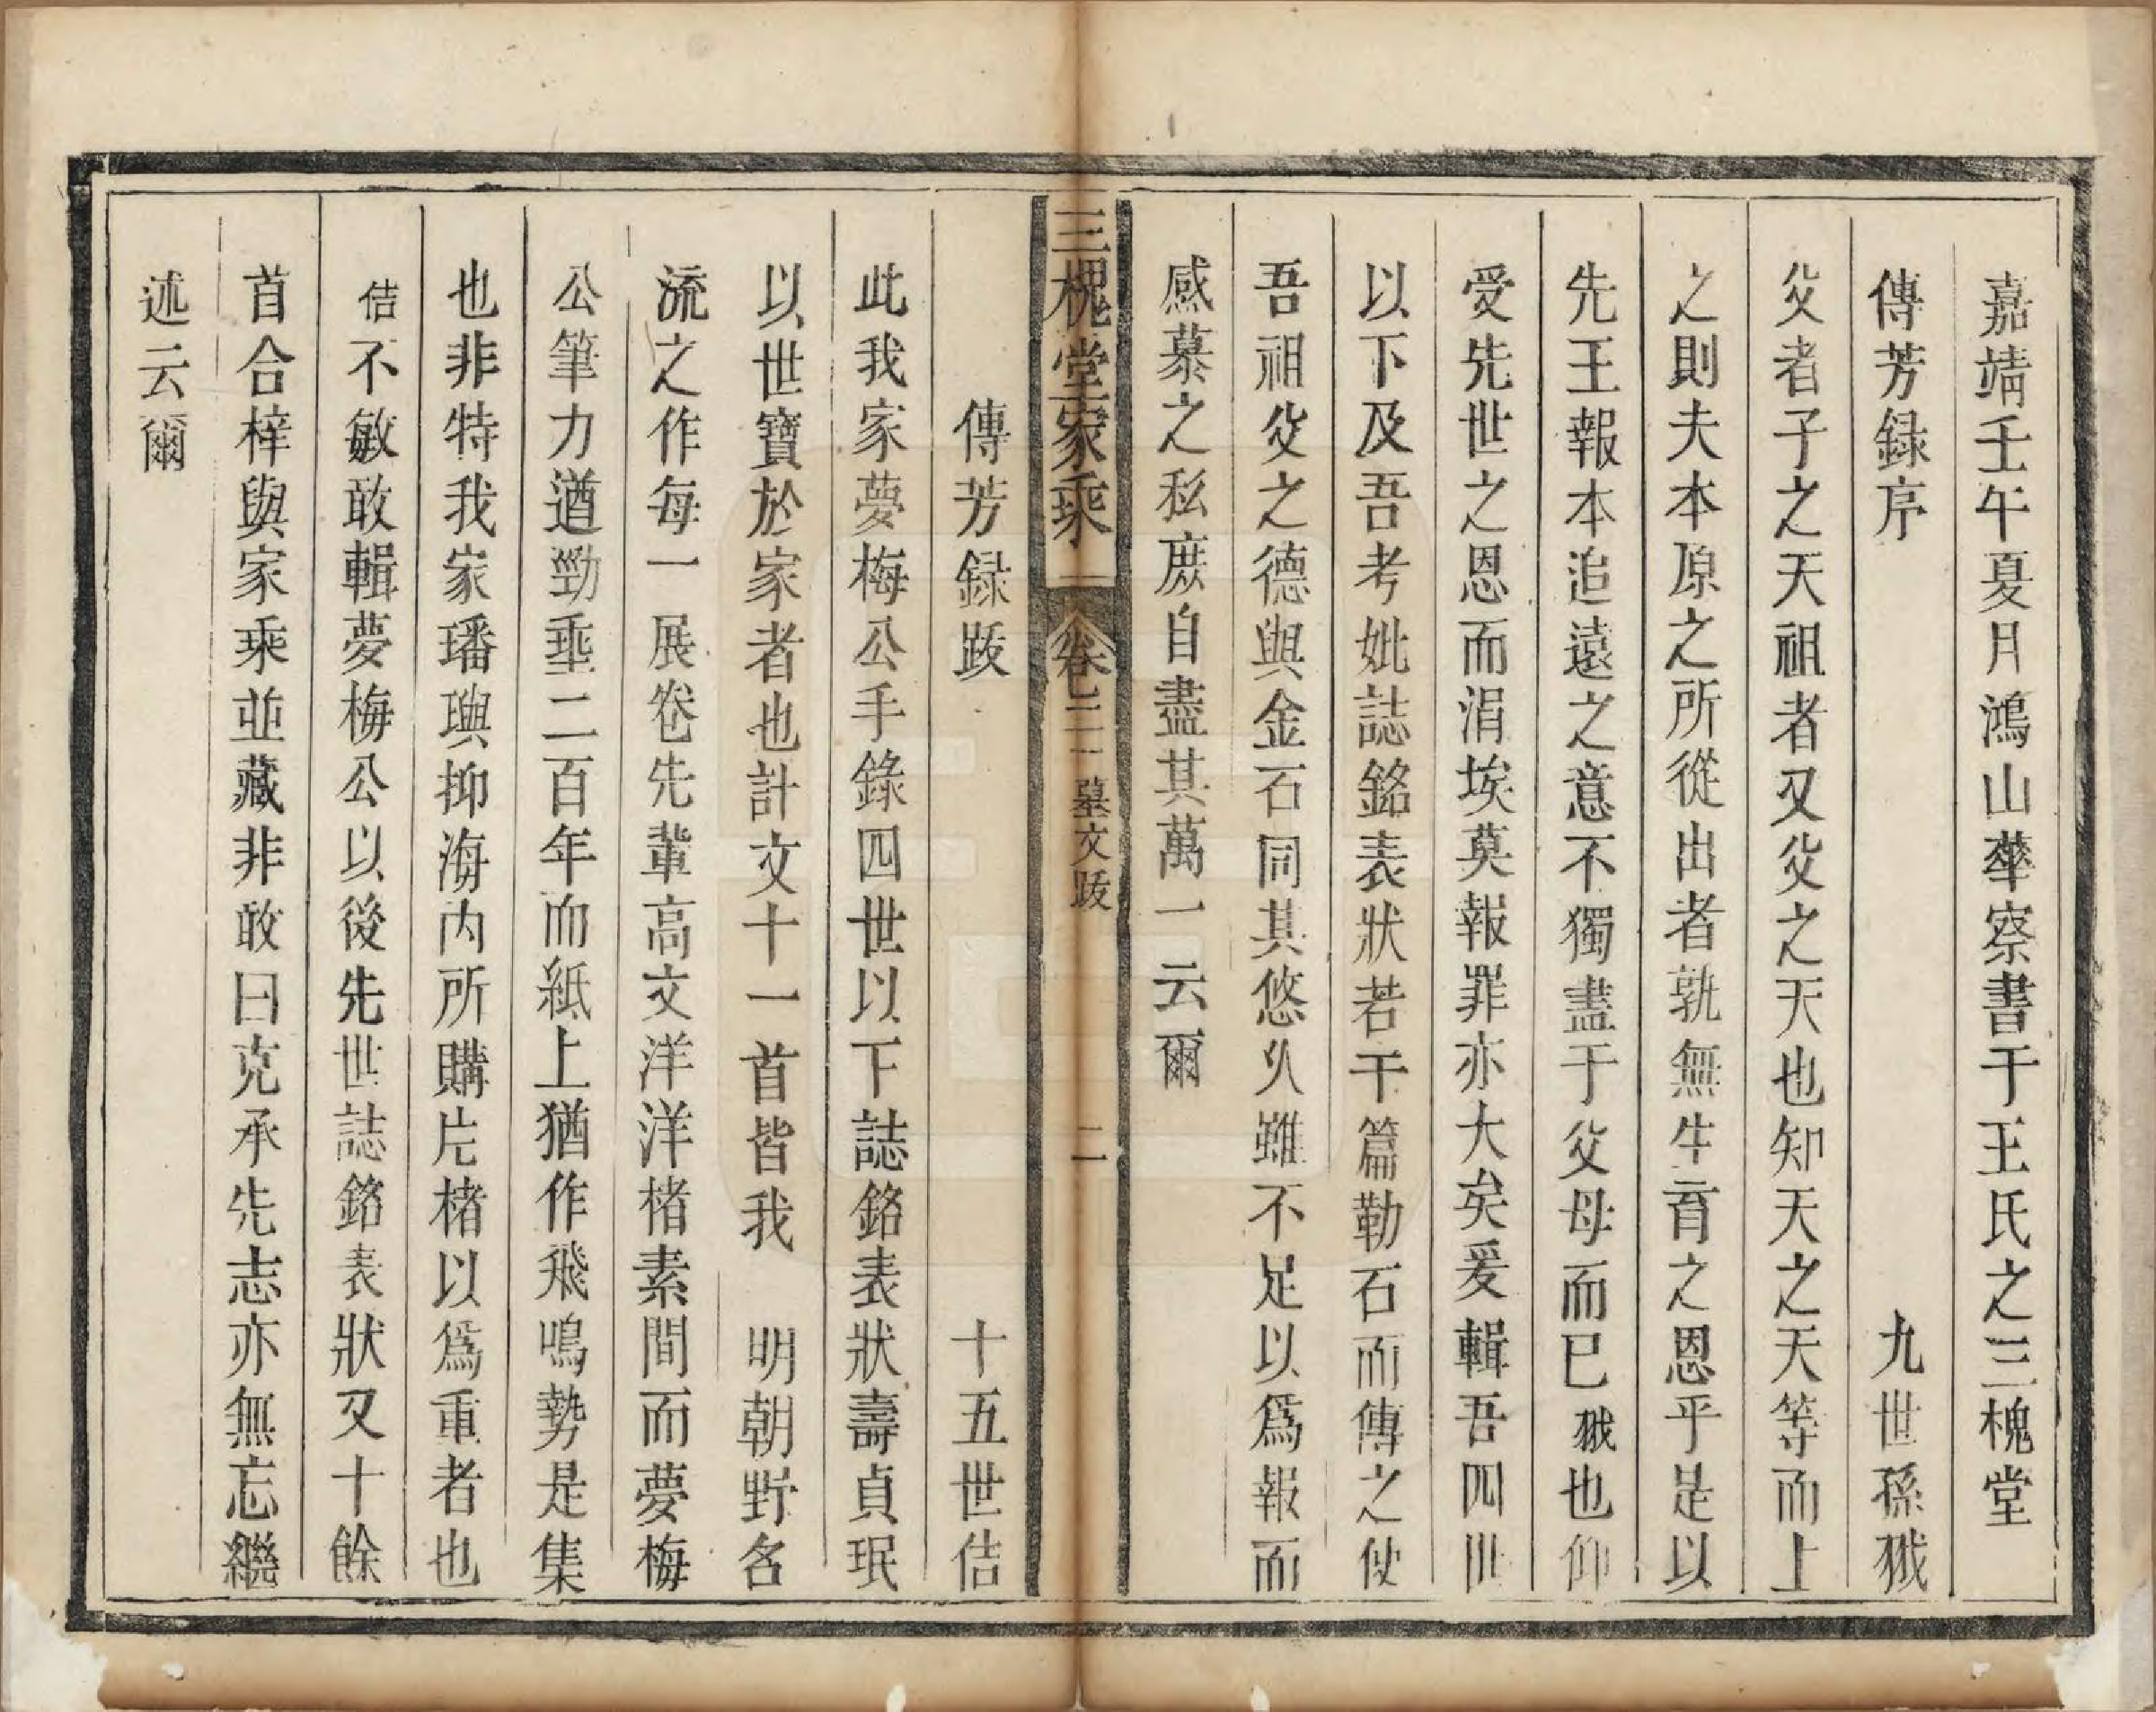 嘉靖壬午夏月鴻山華察書于王氏之三槐堂
傳芳録序　九世孫㺬
父者子之天祖者又父之天也知天之天等而上
之則夫本原之所從出者孰無生育之恩乎是以
先王報本追遠之意不獨盡于父母而已㺬也仰
受先世之恩而涓埃莫報罪亦大矣爰輯吾四世
以下及吾考妣誌銘表狀若干篇勒石而傳之使
吾祖父之德與金石同其悠久雖不足以爲報而
感慕之私庶自盡其萬一云爾
三槐堂家乘　卷三　墓文跋　二
傳芳録跋　十五世佶
此我家夢梅公手錄四世以下誌銘表狀壽貞珉
以世寶於家者也計文十一首皆我　明朝野名
流之作每一展卷先輩高文洋洋楮素間而夢梅
公筆力遒勁垂二百年而紙上猶作飛鳴勢是集
也非特我家璠璵抑海内所購片楮以爲重者也
佶不敏敢輯夢梅公以後先世誌銘表狀又十餘
首合梓與家乘並藏非敢曰克承先志亦無忘繼
述云爾